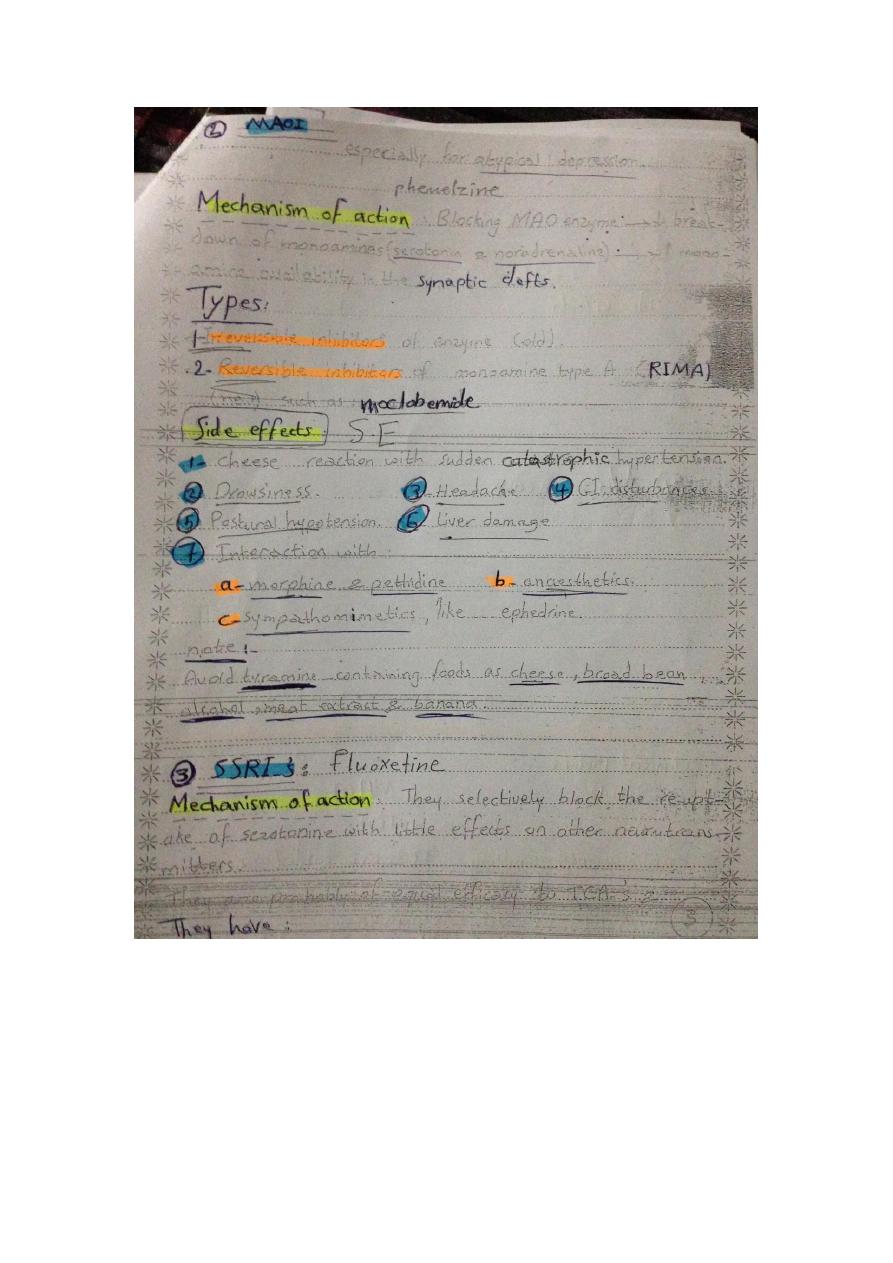 2 MAOI
especially for atypical depression
phenelzine
Mechanism of action: Blocking MAO enzyme → ↓ break-
down of monoamines (serotonin & noradrenaline) → ↑ mono-
amine availability in the synaptic clefts.
Types:
1- Irreversible inhibitors of enzyme (old).
2- Reversible inhibitors of monoamine type A (RIMA)
(new) such as moclobemide
Side effects: S.E
1- Cheese reaction with sudden catastrophic hypertension.
2 Drowsiness. 3- Headache 4 GI disturbances
5 Postural hypotension. 6 Liver damage
7 Interaction with:
a- morphine & pethidine b- anaesthetics.
c- sympathomimetics, like ephedrine.
note:-
Avoid tyramine containing foods as cheese, broad bean
alcohol, meat extract & banana.
3 SSRI_s: Fluoxetine
Mechanism of action: They selectively block the reupt-
ake of serotonine with little effects on other neurotrans-
mitters.
They are probably of equal efficacy to TCA's &
They have:
3